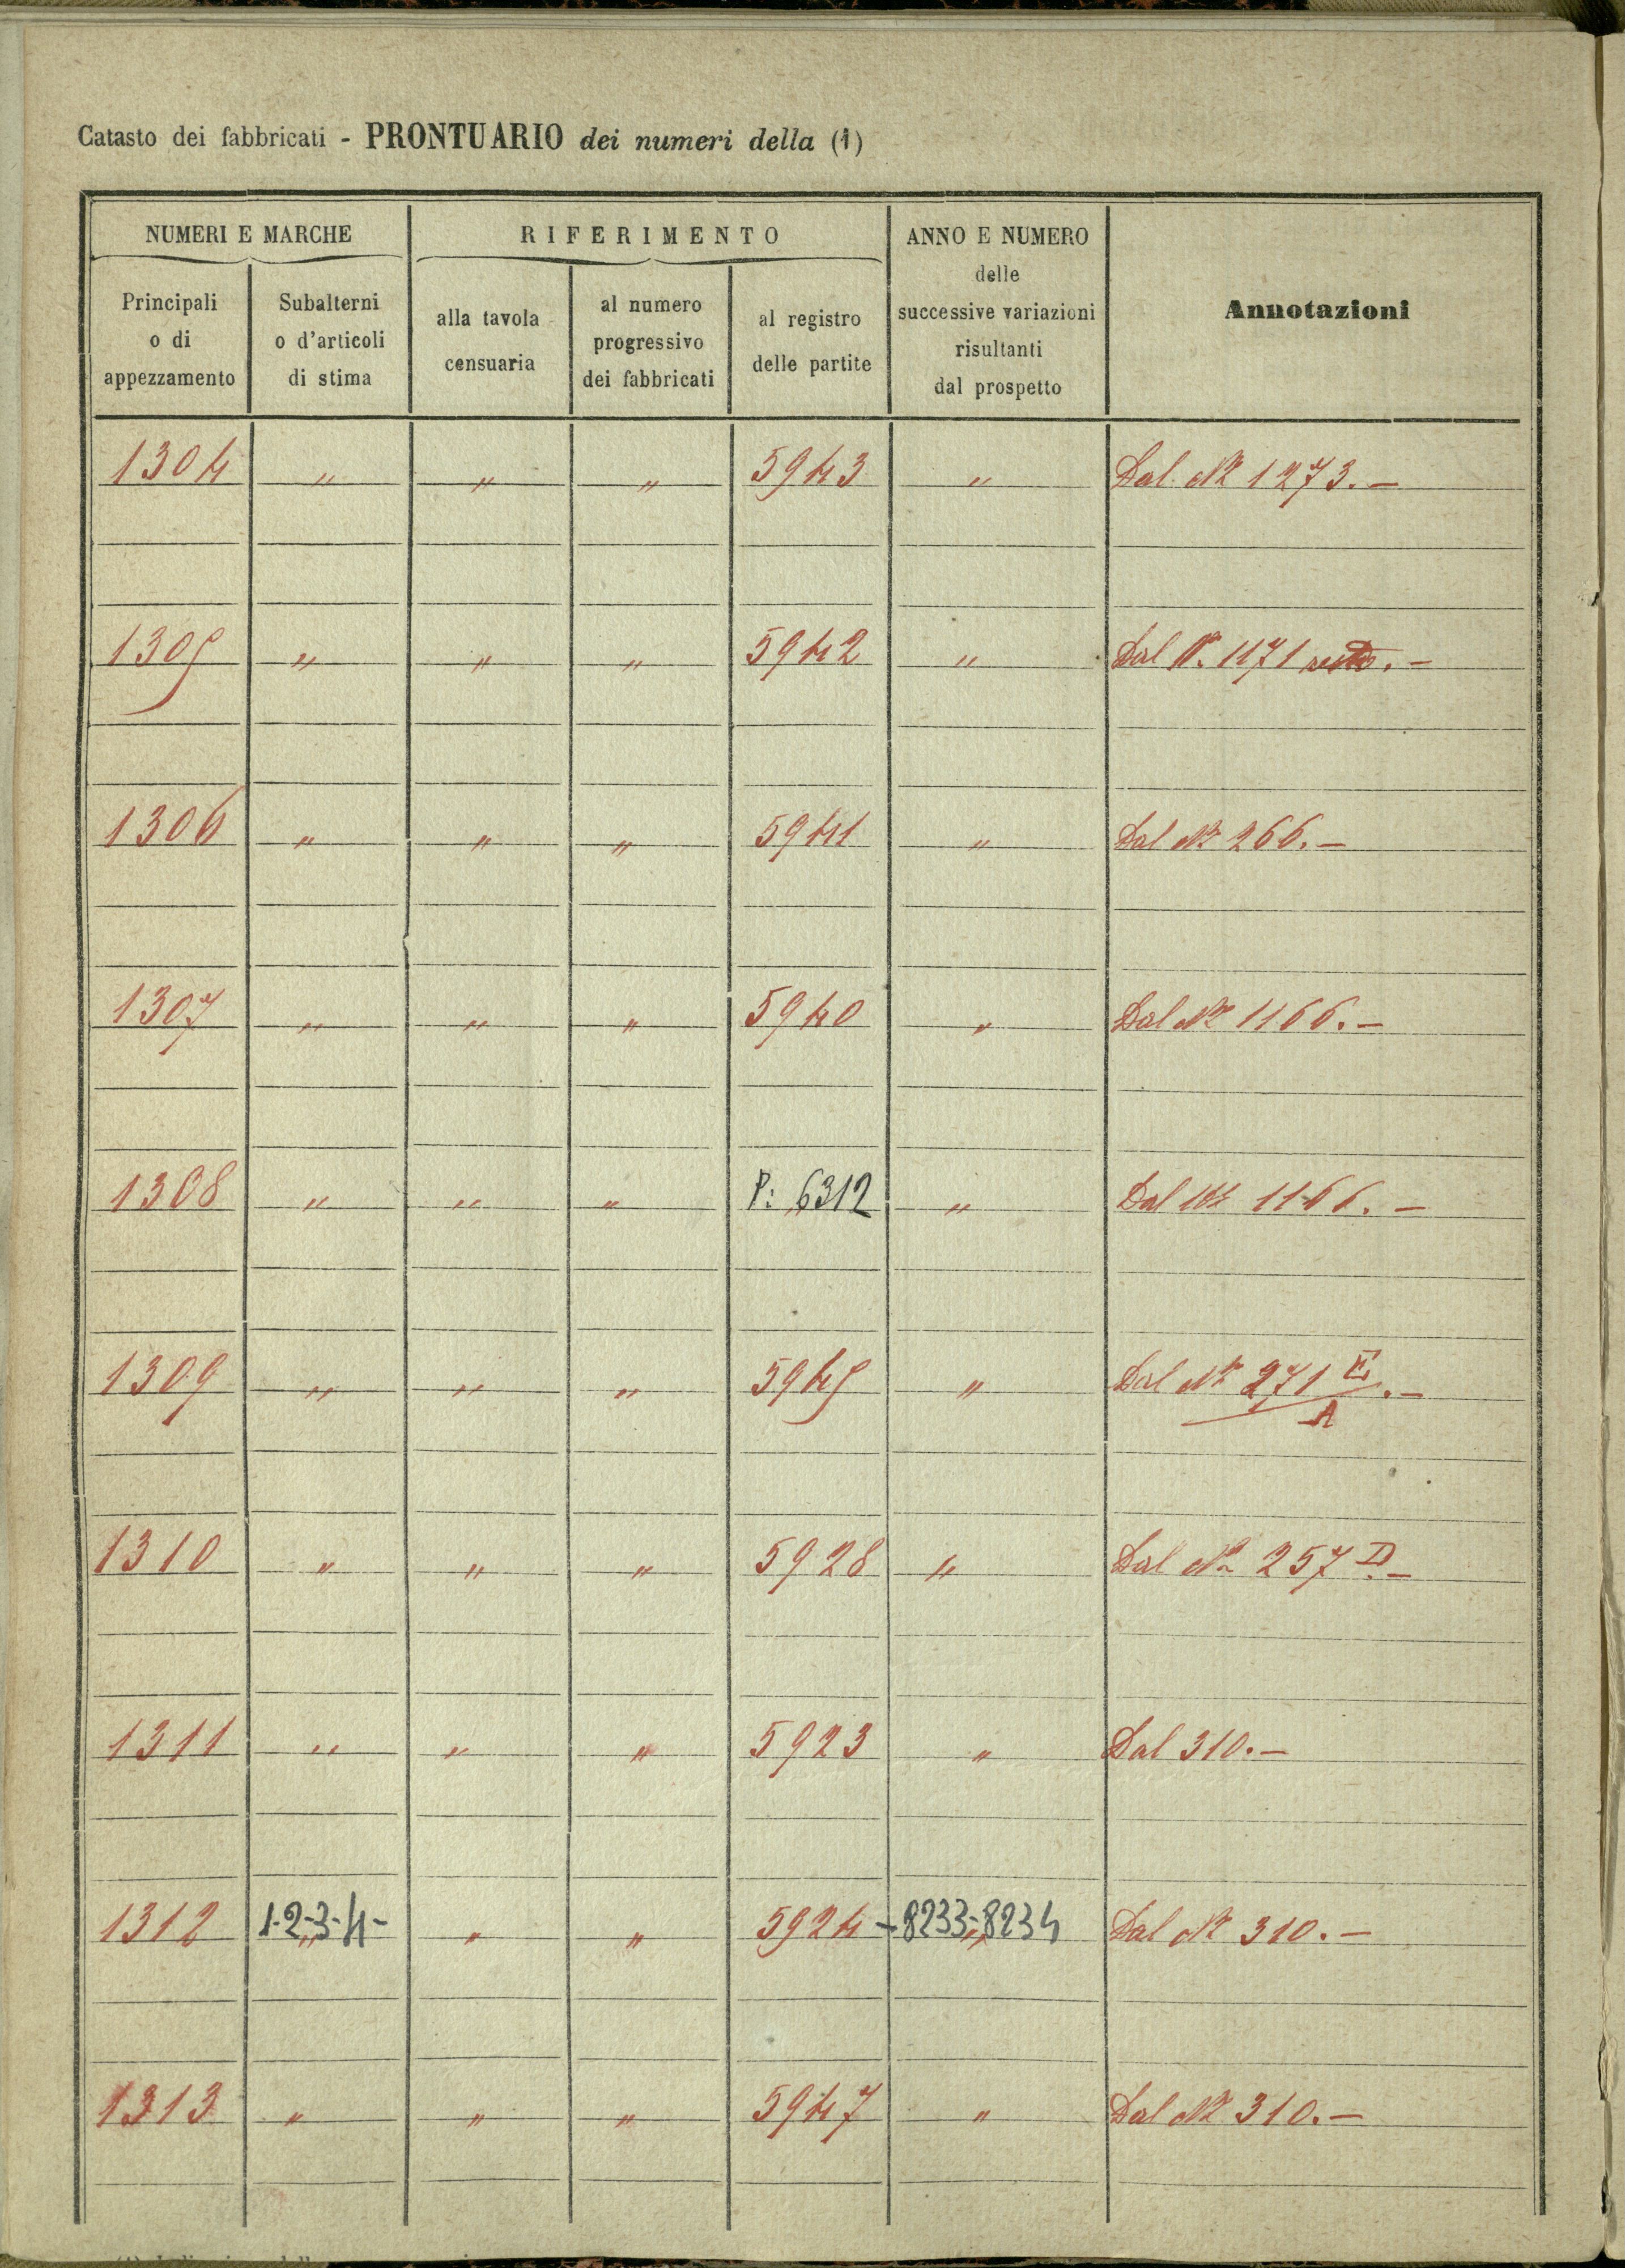 Catasto dei fabbricati - PRONTUARIO dei numeri della (1)
NUMERI E MARCHE
RIFERIMENTO
ANNO E NUMERO
delle
successive variazioni
risultanti
dal prospetto
Annotazioni
Principali
o di
appezzamento
Subalterni
o d'articoli
di stima
alla tavola
censuaria
al numero
progressivo
dei fabbricati
al registro
delle partite
1304 " " " 5943 " Dal Nº 1273. -
1305 " " " 5942 " Dal Nº 1171 resto. -
1306 " " " 5941 " Dal Nº 266. -
1307 " " " 5940 " Dal Nº 1166. -
1308 " " " P: 6312 " Dal Nº 1166. -
1309 " " " 5945 " Dal Nº 271 E/A. -
1310 " " " 5928 " Dal Nº 257 D. -
1311 " " " 5923 " Dal 310. -
1312 1-2-3-4- " " 5924 - 8233-8234 Dal Nº 310. -
1313 " " " 5947 " Dal Nº 310. -